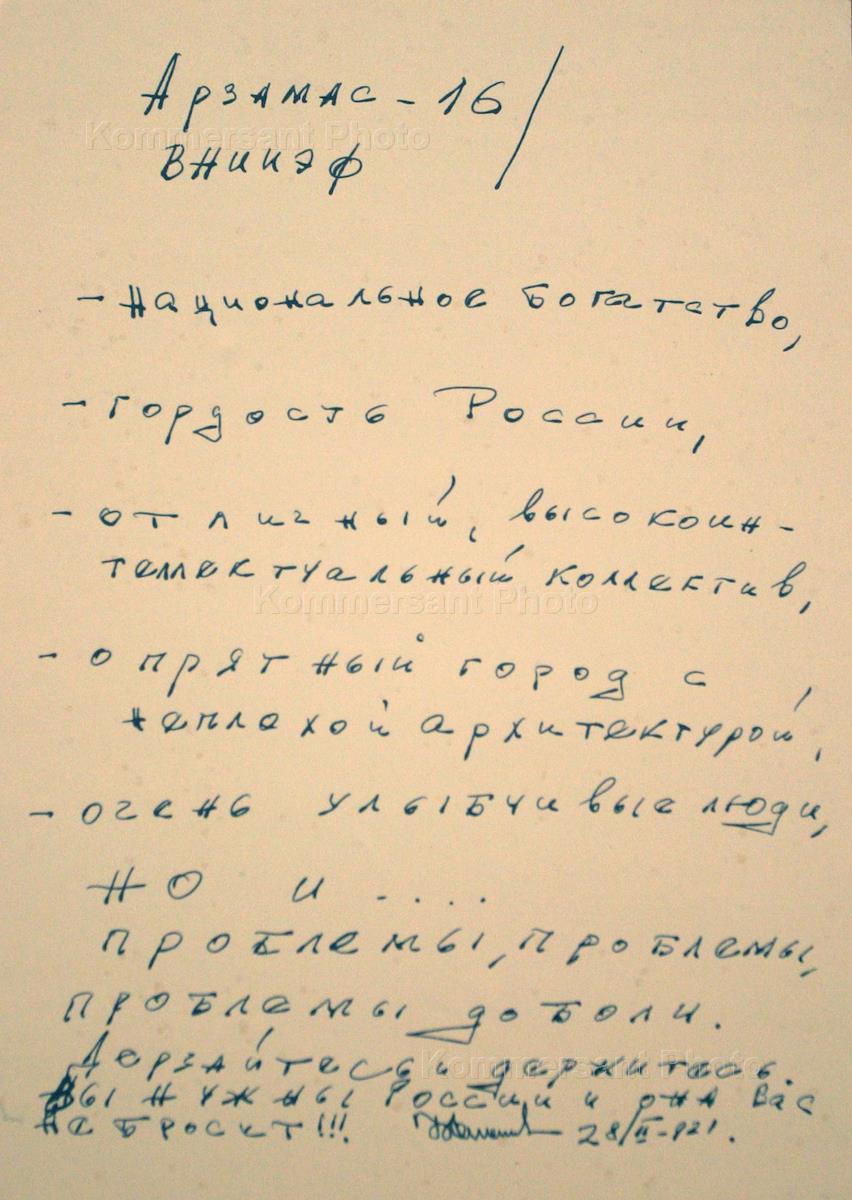 Арзамас-16/
ВНИИЭФ
Kommersant Photo
- национальное богатство,
- гордость России,
- отличный, высокоин-
теллектуальный коллектив,
Kommersant Photo
- опрятный город с
неплохой архитектурой,
- очень улыбчивые люди,
НО и ....
проблемы, проблемы,
проблемы до боли.
Дерзайтесь и держитесь.
Kommersant Photo
Вы нужны России и она Вас
не бросит!!! 28/II-92г.